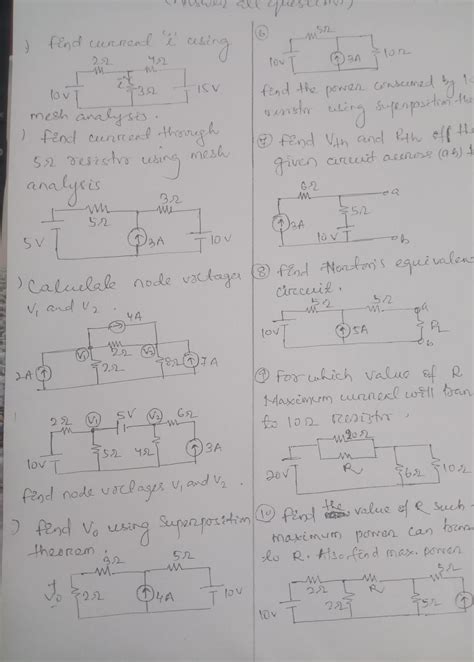 (Answer all questions)
) find current 'i' using
2Ω 4Ω
10V i 3Ω 15V
mesh analysis.
) find current through
5Ω resistor using mesh
analysis
5Ω 3Ω
5V 3A 10V
) Calculate node voltages
V₁ and V₂.
4A
V₁ 2Ω V₂
2A 2Ω 8Ω 7A
2Ω V₁ 5V V₂ 6Ω
10V 5Ω 4Ω 3A
find node voltages V₁ and V₂.
) find V₀ using Superposition
theorem.
3Ω 5Ω
V₀ 2Ω 4A 10V
⑥ 5Ω
10V 2A 10Ω
find the power consumed by
resistor using superposition
⑦ find Vth and Rth off the
given circuit across (ab)
6Ω a
2A 5Ω
10V b
⑧ find Norton's
circuit.
5Ω 5Ω a
10V 5A RL
b
⑨ For which value of R
Maximum current will
to 10Ω resistor.
20Ω
R
20V 6Ω 10Ω
⑩ find value of R such
maximum power can
to R. Also find max. power
2Ω R 5Ω
10V 5Ω